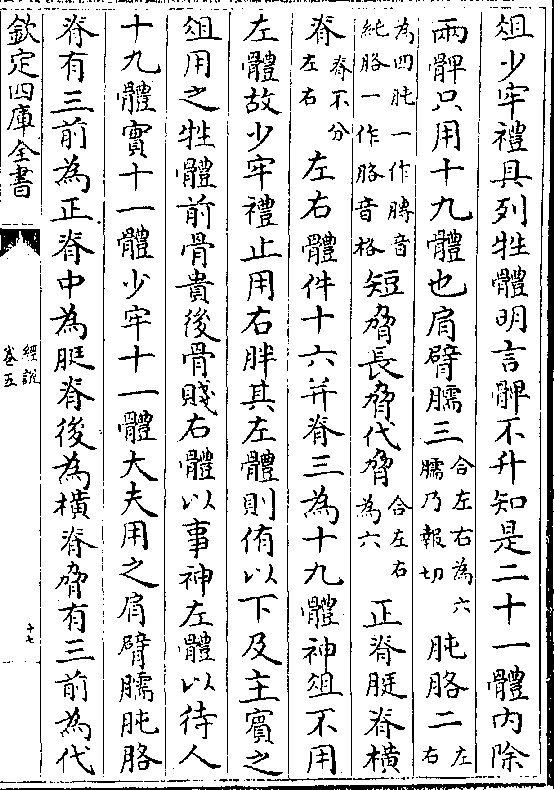 俎少牢禮具列牲體明言髀不升知是二十一體内除
兩髀只用十九體也肩臂臑三合左右為六臑乃報切肫胳二左右
為四肫一作膞音純胳一作骼音格短脅長脅代脅合左右為六正脊脡脊橫
脊脊不分左右左右體件十六并脊三為十九體神俎不用
左體故少牢禮止用右胖其左體則侑以下及主賓之
俎用之牲體前骨貴後骨賤右體以事神左體以待人
十九體實十一體少牢十一體大夫用之肩臂臑肫胳
脊有三前為正脊中為脡脊後為橫脊脅有三前為代
欽定四庫全書
經說
卷五
十七